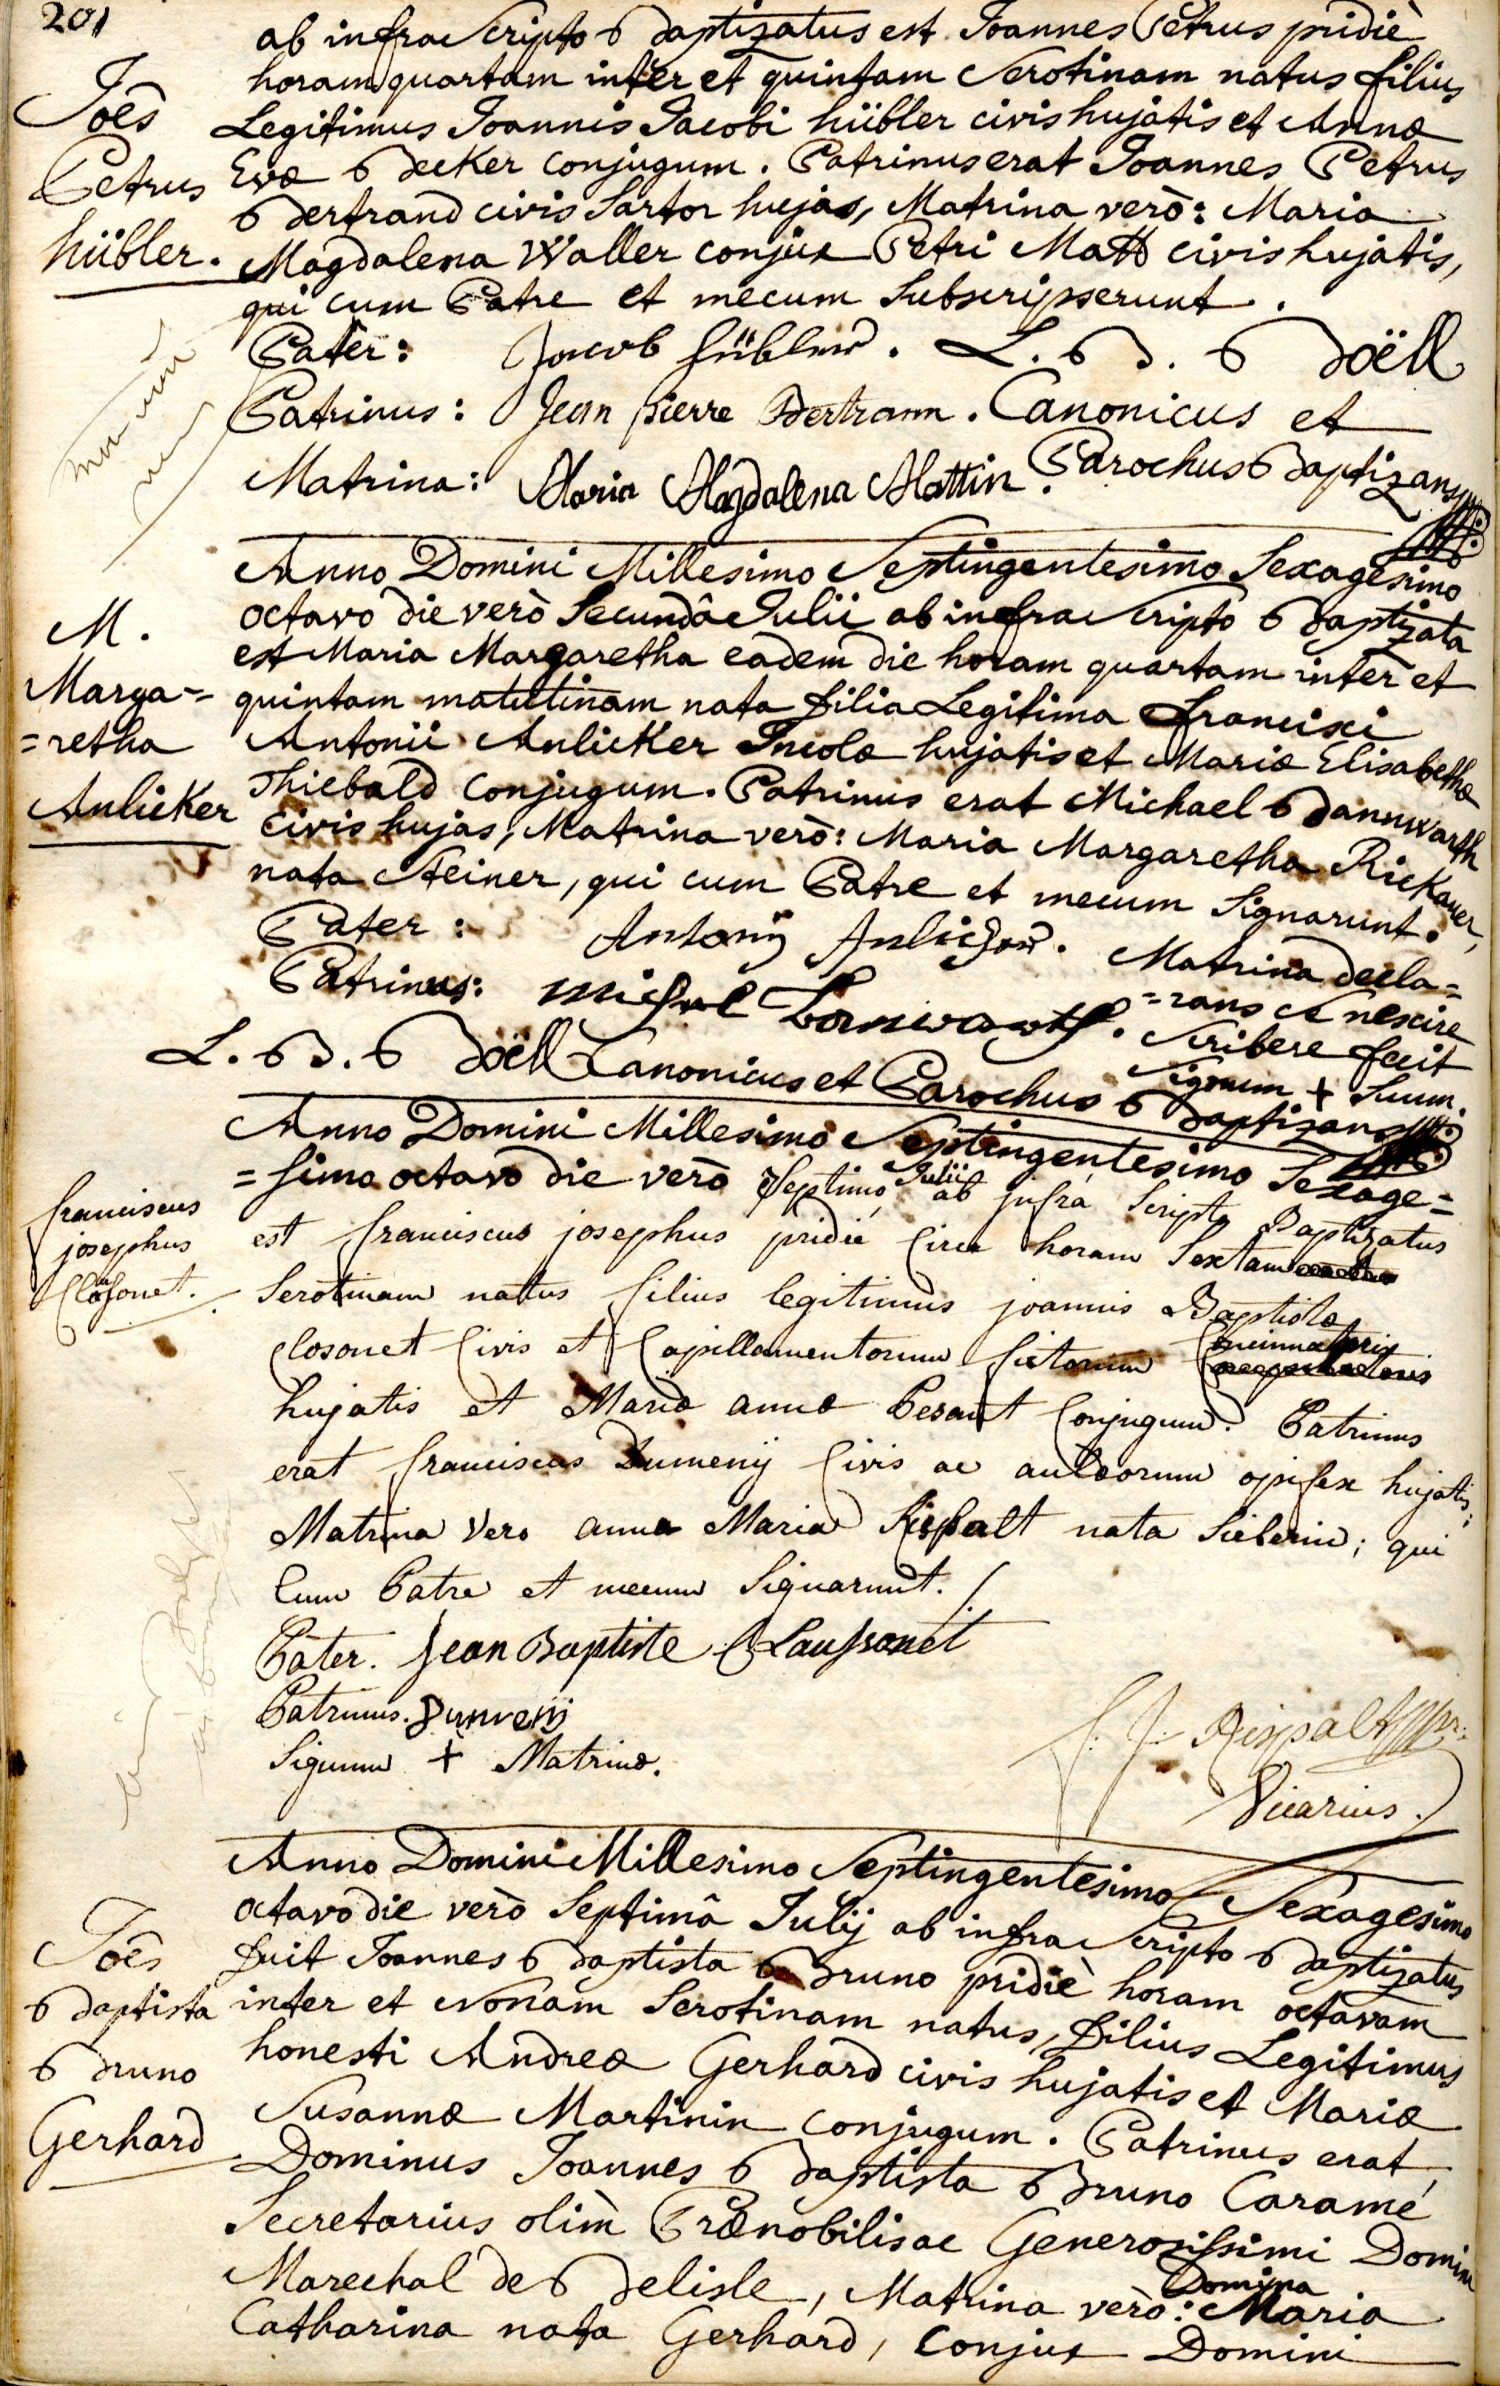 201
ab infra Scripto Baptizatus est Joannes Petrus pridiè
horam quartam inter et quintam Serotinam natus filius
Legitimus Joannis Jacobi hübler civis hujatis et Annæ
Evæ Becker conjugum. Patrinus erat Joannes Petrus
Bertrand civis Sartor hujas, Matrina verò: Maria
Magdalena Waller conjux Petri Matt civis hujatis,
qui cum Patre et mecum Subscripserunt.
Joês
Petrus
hübler.
Pater: Jacob hübler. L. B. Boëll
Patrinus: Jean pierre Bertrann. Canonicus et
Matrina: Maria Magdalena Mattin. Parochus Baptizans
Anno Domini Millesimo Septingentesimo Sexagesimo
octavo die verò Secundâ Julii ab infra Scripto Baptizata
est Maria Margaretha eadem die horam quartam inter et
quintam matutinam nata filia Legitima francisci
Antonii Anlicker Incolæ hujatis et Mariæ Elisabethæ
Thiebald conjugum. Patrinus erat Michael Bannwarth
civis hujas, Matrina verò: Maria Margaretha Rickauer,
nata Steiner, qui cum Patre et mecum Signarunt.
M.
Marga=
=retha
Anlicker
Pater: Antonÿ Anlicker. Matrina decla=
Patrinus: Michel Banwarth. =rans Nescire
Scribere fecit
Signum + Suum.
L. B. Boëll Canonicus et Parochus Baptizans
Anno Domini Millesimo Septingentesimo Sexage=
=simo octavo die verò Septimo Julii ab infrá Scripto Baptizatus
est franciscus josephus pridié Circa horam Sextam
Serotinam natus filius legitimus joannis Baptistæ
Closonet Civis et Capillamentorum fictorum Concinnatoris
hujatis et Mariæ annæ Besant Conjugum. Patrinus
erat franciscus Dumenÿ Civis ac aulæorum opifex hujatis;
Matrina Vero anna Maria Rispalt nata Sieberin; qui
Cum Patre et mecum Signarunt.
franciscus
josephus
Closonet.
Pater. Jean Baptiste Claussonet
Patrinus. Dumenÿ
Signum + Matrinæ.
f. J. Rispalt
Vicarius.
Anno Domini Millesimo Septingentesimo Sexagesimo
octavo die verò Septimâ Julÿ ab infra Scripto Baptizatus
fuit Joannes Baptista Bruno pridiè horam octavam
inter et Nonam Serotinam natus, filius Legitimus
honesti Andreæ Gerhard civis hujatis et Mariæ
Susannæ Martinin conjugum. Patrinus erat
Dominus Joannes Baptista Bruno Caramé
Secretarius olìm Prænobilis ac Generosissimi Domini
Marechal de Belisle, Matrina verò: Domina Maria
Catharina nata Gerhard, Conjux Domini
Joês
Baptista
Bruno
Gerhard